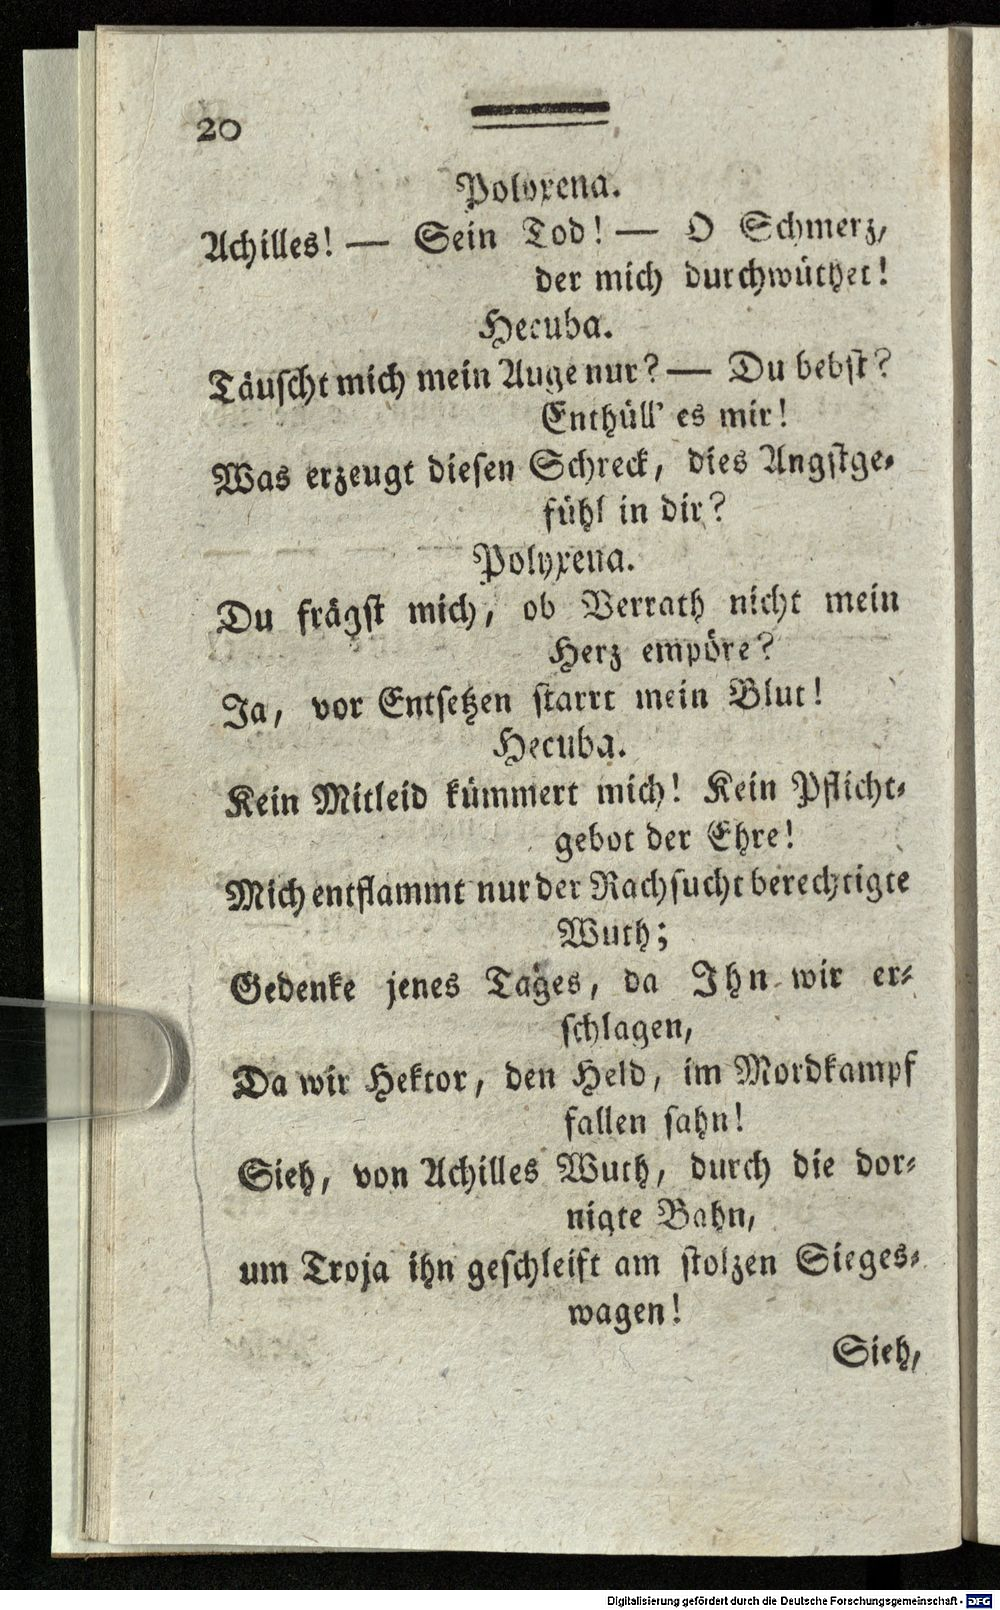 20
Polyxena.
Achilles! — Sein Tod! — O Schmerz,
der mich durchwüthet!
Hecuba.
Täuscht mich mein Auge nur? — Du bebst?
Enthüll' es mir!
Was erzeugt diesen Schreck, dies Angstge-
fühl in dir?
Polyxena.
Du frägst mich, ob Verrath nicht mein
Herz empöre?
Ja, vor Entsetzen starrt mein Blut!
Hecuba.
Kein Mitleid kümmert mich! Kein Pflicht-
gebot der Ehre!
Mich entflammt nur der Rachsucht berechtigte
Wuth;
Gedenke jenes Tages, da Ihn wir er-
schlagen,
Da wir Hektor, den Held, im Mordkampf
fallen sahn!
Sieh, von Achilles Wuth, durch die dor-
nigte Bahn,
um Troja ihn geschleift am stolzen Sieges-
wagen!
Sieh,
Digitalisierung gefördert durch die Deutsche Forschungsgemeinschaft - DFG